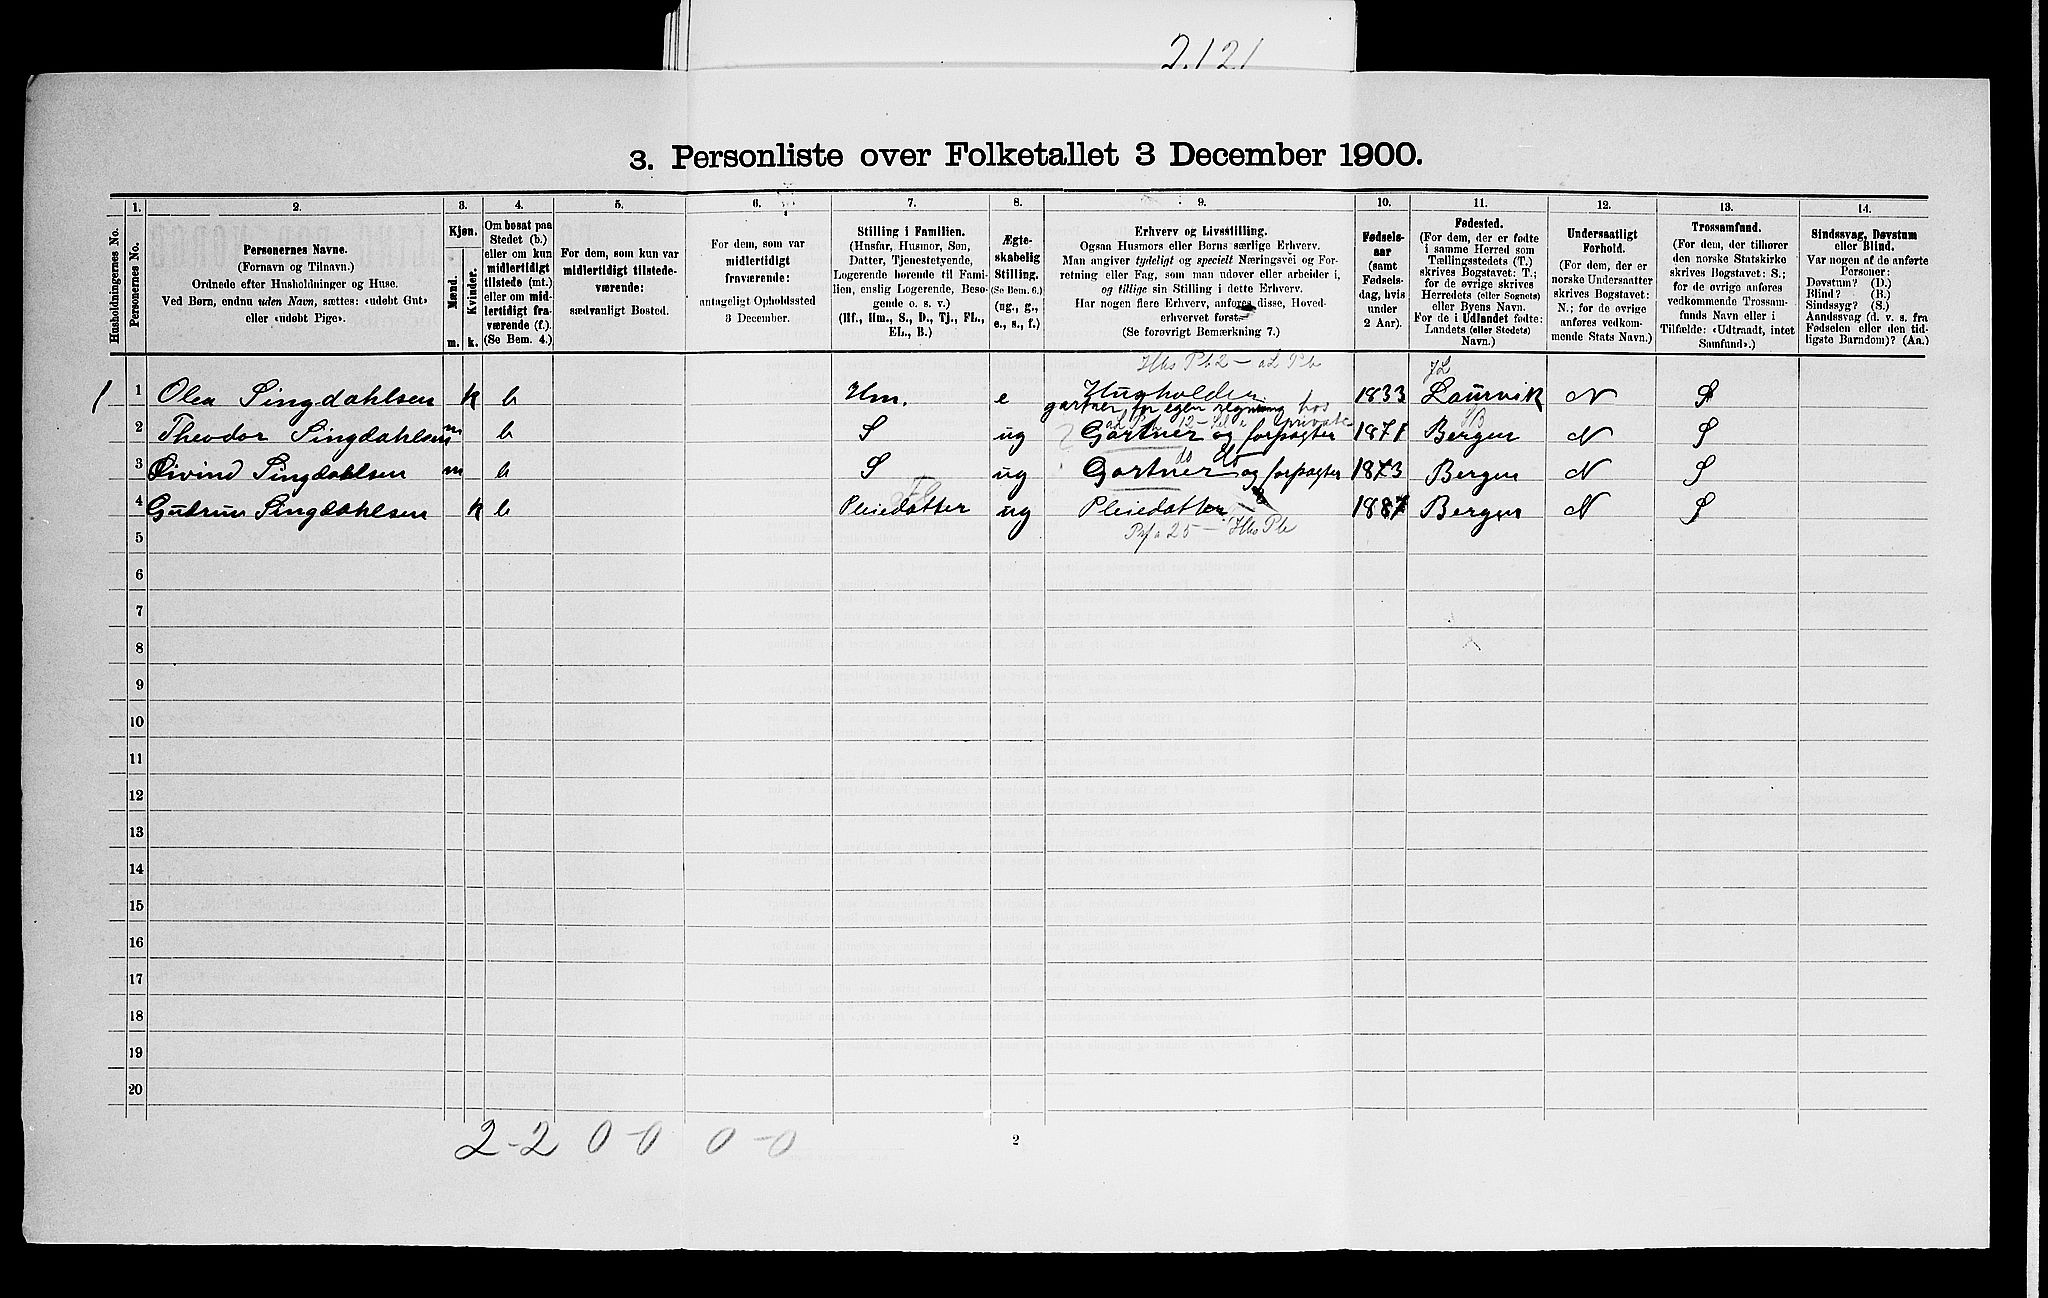 2.121
3. Personliste over Folketallet 3 December 1900.
Husholdningernes No.
1.
Personernes No.
2.
Personernes Navne.
(Fornavn og Tilnavn.)
Ordnede efter Husholdninger og Huse.
Ved Børn, endnu uden Navn, sættes: «udøbt Gut»
eller «udøbt Pige».
3.
Kjøn.
Mænd.
Kvinder.
m. k.
4.
Om bosat paa
Stedet (b.)
eller om kun
midlertidigt
tilstede (mt.)
eller om mid-
lertidigt fra-
værende (f.).
(Se Bem. 4.)
5.
For dem, som kun var
midlertidigt tilstede-
værende:
sædvanligt Bosted.
6.
For dem, som var
midlertidigt
fraværende:
antageligt Opholdssted
3 December.
7.
Stilling i Familien.
(Husfar, Husmor, Søn,
Datter, Tjenestetyende,
Logerende hørende til Fami-
lien, enslig Logerende, Besø-
gende o. s. v.)
(Hf., Hm., S., D., Tj., FL.,
EL., B.)
8.
Ægte-
skabelig
Stilling.
(Se Bem. 6.)
(ug., g.,
e., s., f.)
9.
Erhverv og Livsstilling.
Ogsaa Husmors eller Børns særlige Erhverv.
Man angiver tydeligt og specielt Næringsvei og For-
retning eller Fag, som man udover eller arbeider i,
og tillige sin Stilling i dette Erhverv.
Har nogen flere Erhverv, anføres disse, Hoved-
erhvervet først.
(Se forøvrigt Bemærkning 7.)
10.
Fødsels-
aar
(samt
Fødsels-
dag, hvis
under
2 Aar).
11.
Fødested.
(For dem, der er fødte
i samme Herred som
Tællingsstedets (T.)
skrives Bogstavet: T.;
for de øvrige skrives
Herredets (eller Sognets)
eller Byens Navn.
For de i Udlandet fødte:
Landets (eller Stedets)
Navn.)
12.
Undersaatligt
Forhold.
(For dem, der er
norske Undersaatter
skrives Bogstavet:
N.; for de øvrige
anføres vedkom-
mende Stats Navn.)
13.
Trossamfund.
(For dem, der tilhører
den norske Statskirke
skrives Bogstavet: S.;
for de øvrige anføres
vedkommende Trossam-
funds Navn eller i
Tilfælde: «Udtraadt, intet
Samfund».)
14.
Sindssvag, Døvstum
eller Blind.
Var nogen af de anførte
Personer:
Døvstum? (D.)
Blind? (B.)
Sindssyg? (S.)
Aandssvag (d. v. s. fra
Fødselen eller den tid-
ligste Barndom)? (Aa.)
1 1 Olea Singdahlsen k b Hm. e 1833 Laurvik N S
gartner for egen regning hos private
2 Theodor Singdahlsen m b S ug Gartner og forpagter 1871 Bergen N S
do do
3 Øivind Singdahlsen m b S ug Gartner og forpagter 1873 Bergen N S
4 Gudrun Singdahlsen k b Pleiedatter ug Pleiedatter 1887 Bergen N S
5
6
7
8
9
10
11
12
13
14
15
16
17
18
19
20
2-2 0-0 0-0
2